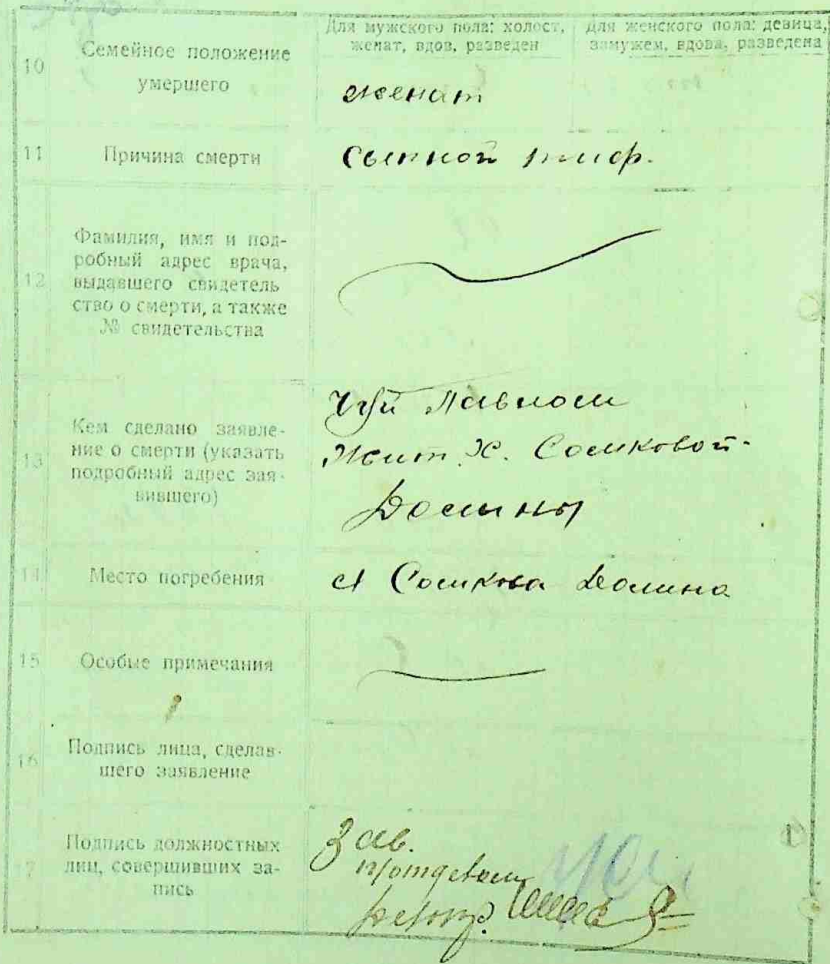 Для мужского пола: холост,
женат, вдов, разведен
Для женского пола: девица,
замужем, вдова, разведена
10 Семейное положение
умершего
женат
11 Причина смерти
Сыпной тиф.
12 Фамилия, имя и под-
робный адрес врача,
выдавшего свидетель
ство о смерти, а также
№ свидетельства
13 Кем сделано заявле-
ние о смерти (указать
подробный адрес зая-
вившего)
Чуй Павлом
Жит. х. Сошковой-
Долины
14 Место погребения
Сошкова Долина
15 Особые примечания
16 Подпись лица, сделав-
шего заявление
17 Подпись должностных
лиц, совершивших за-
пись
Зав.
п/отделом